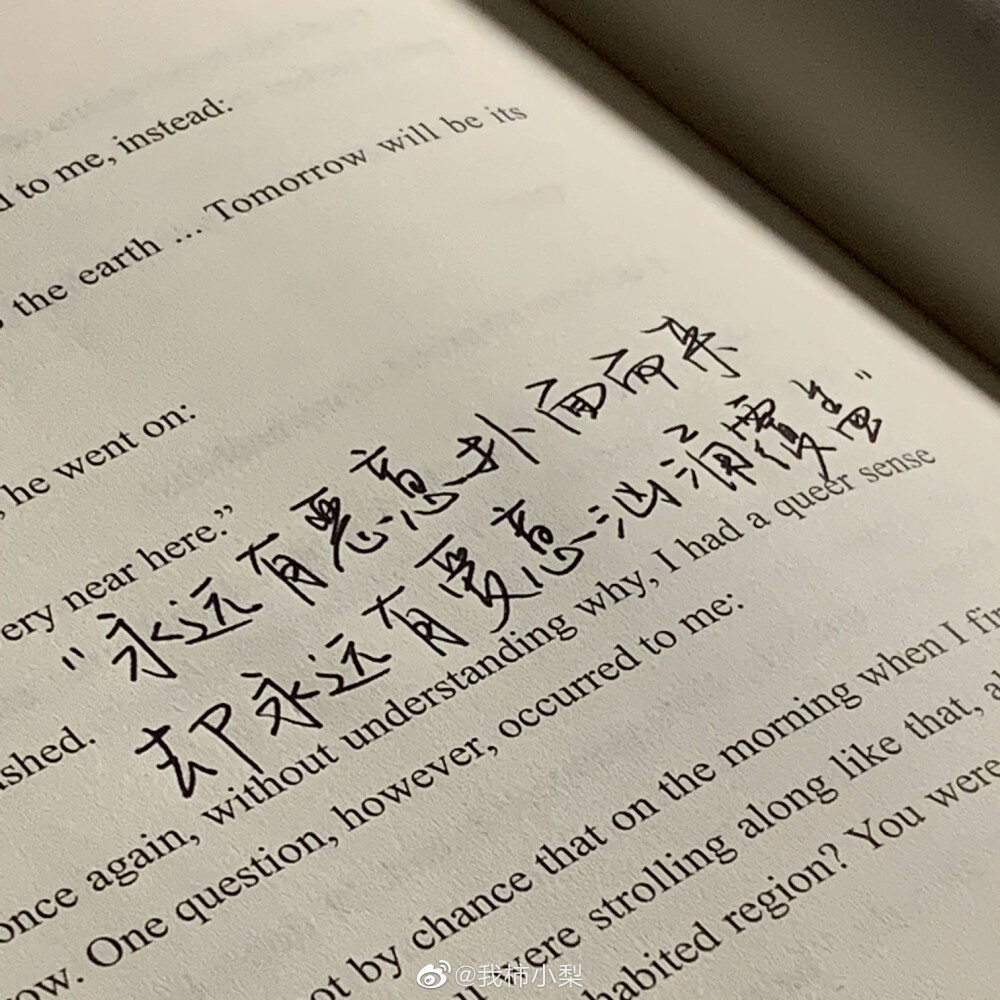 d to me, instead:
the earth ... Tomorrow will be its
, he went on:
ery near here.”
“永远有恶意扑面而来
却永远有爱意汹涌覆盖”
ished.
once again, without understanding why, I had a queer sense
ow. One question, however, occurred to me:
ot by chance that on the morning when I fir
were strolling along like that, al
habited region? You were
@我柿小梨